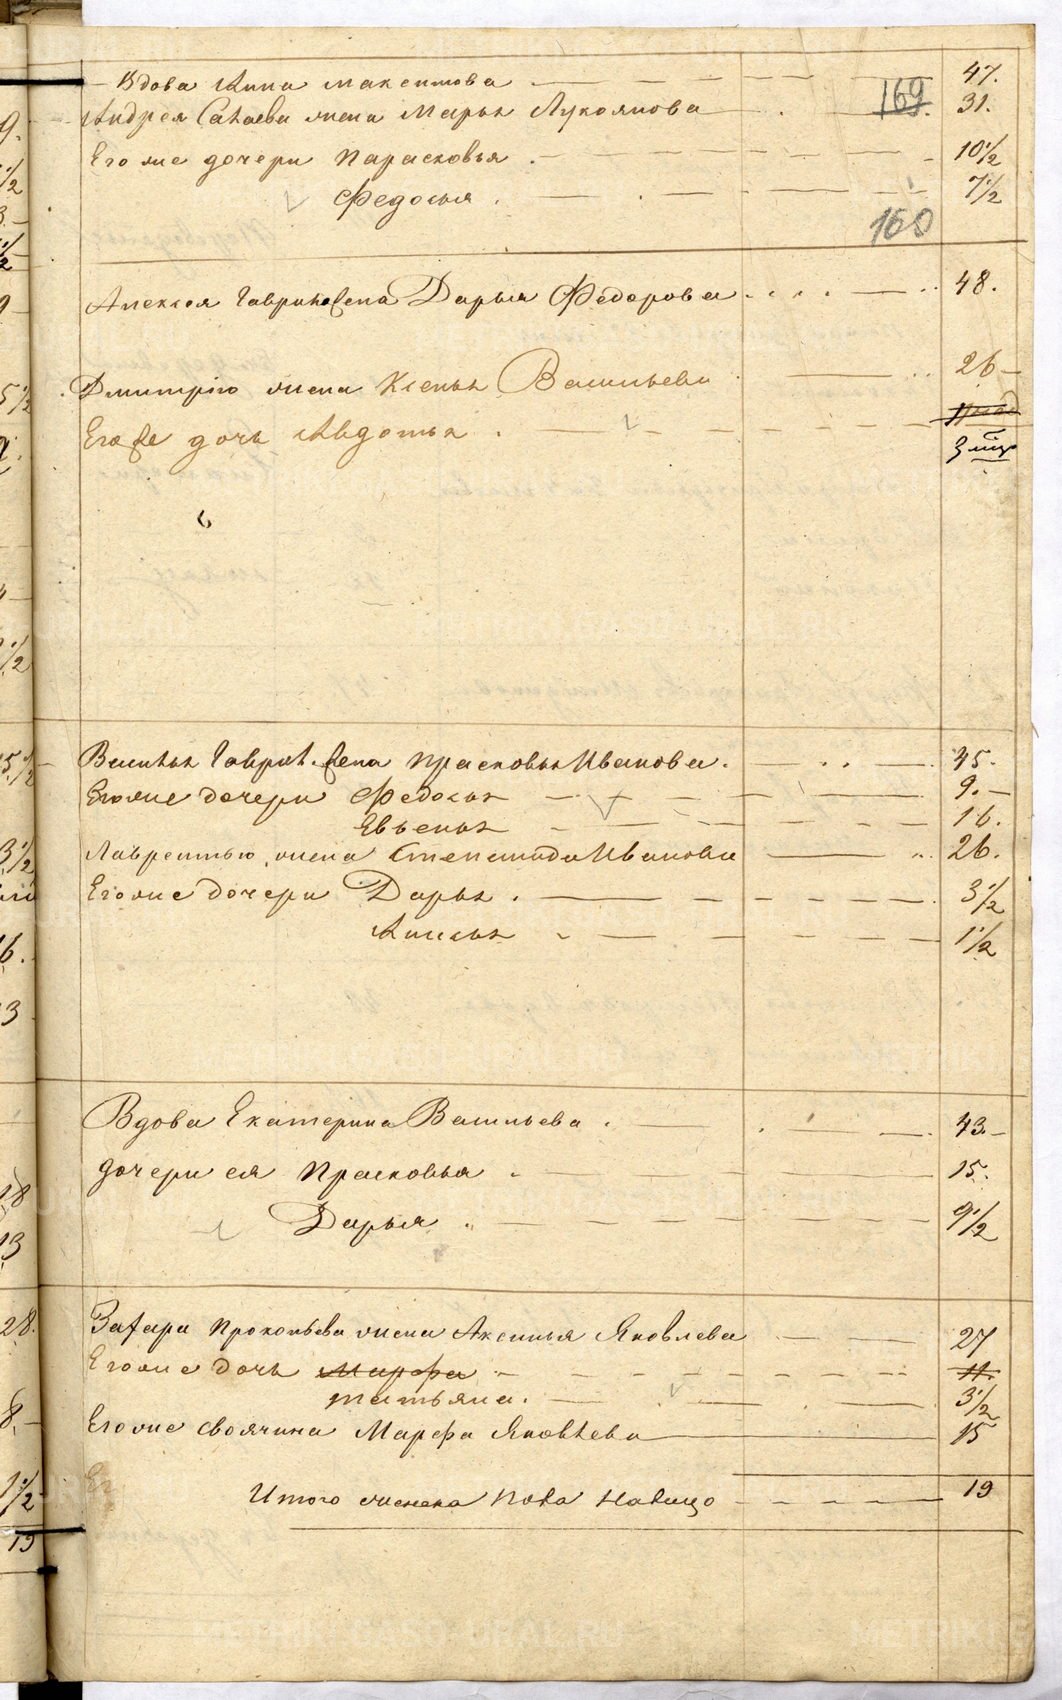 Вдова Анна Максимова 47.
169.
Андрея Саваева жена Марья Лукоянова 31.
Его же дочери Парасковья 10 1/2
Федосья 7 1/2
160
Алексея Гаврилова жена Дарья Федорова 48.
Дмитрію жена Ксенья Васильева 26
Его же дочь Авдотья
3 мѣс
Василья Гаврил. жена Прасковья Иванова. 45.
Его же дочери Федосья 9.
Евгенья 16.
Лаврентью жена Степанида Иванова 26.
Его же дочери Дарья 3 1/2
Анисья 1 1/2
Вдова Екатерина Васильева 43
дочери ея Прасковья 15.
Дарья 9 1/2
Захара Прокопьева жена Аксинья Яковлева 27
Его же дочь Марфа 11.
татьяна. 3 1/2
Его же своячина Марфа Яковлева 15
Итого женска пола налицо 19